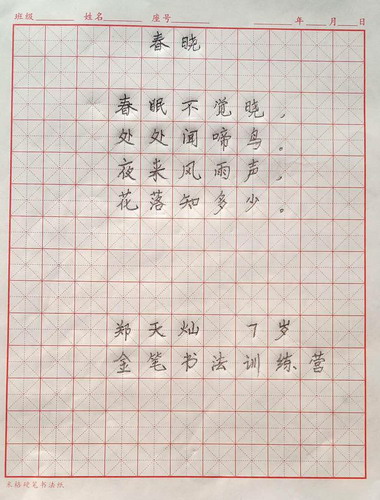 班级 姓名 座号 年 月 日
春晓
春眠不觉晓，
处处闻啼鸟。
夜来风雨声，
花落知多少。
郑天灿 7岁
金笔书法训练营
米格硬笔书法纸